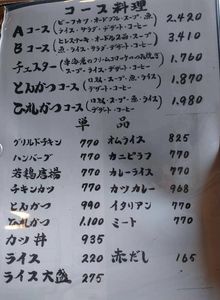 コース料理
Aコース (ビーフカツ・オードブル・スープ・魚 ライス・サラダ・デザート・コーヒー) 2.420
Bコース (ヒレステーキ・オードブル・スープ 魚・ライス・サラダ・デザート・コーヒー) 3.410
チェスター クリームコロッケ スープ・ライス・デザート・コーヒー 1.760
とんかつコース (ロース スープ・ライス デザート・コーヒー) 1.870
ひれかつコース スープ・ライス デザート・コーヒー 1.980
単品
グリルドチキン 770 オムライス 825
ハンバーグ 770 カニピラフ 770
若鶏唐揚 770 カレーライス 770
チキンカツ 770 カツカレー 968
とんかつ 990 イタリアン 770
ひれかつ 1.100 ミート 770
カツ丼 935
ライス 220 赤だし 165
ライス大盛 275